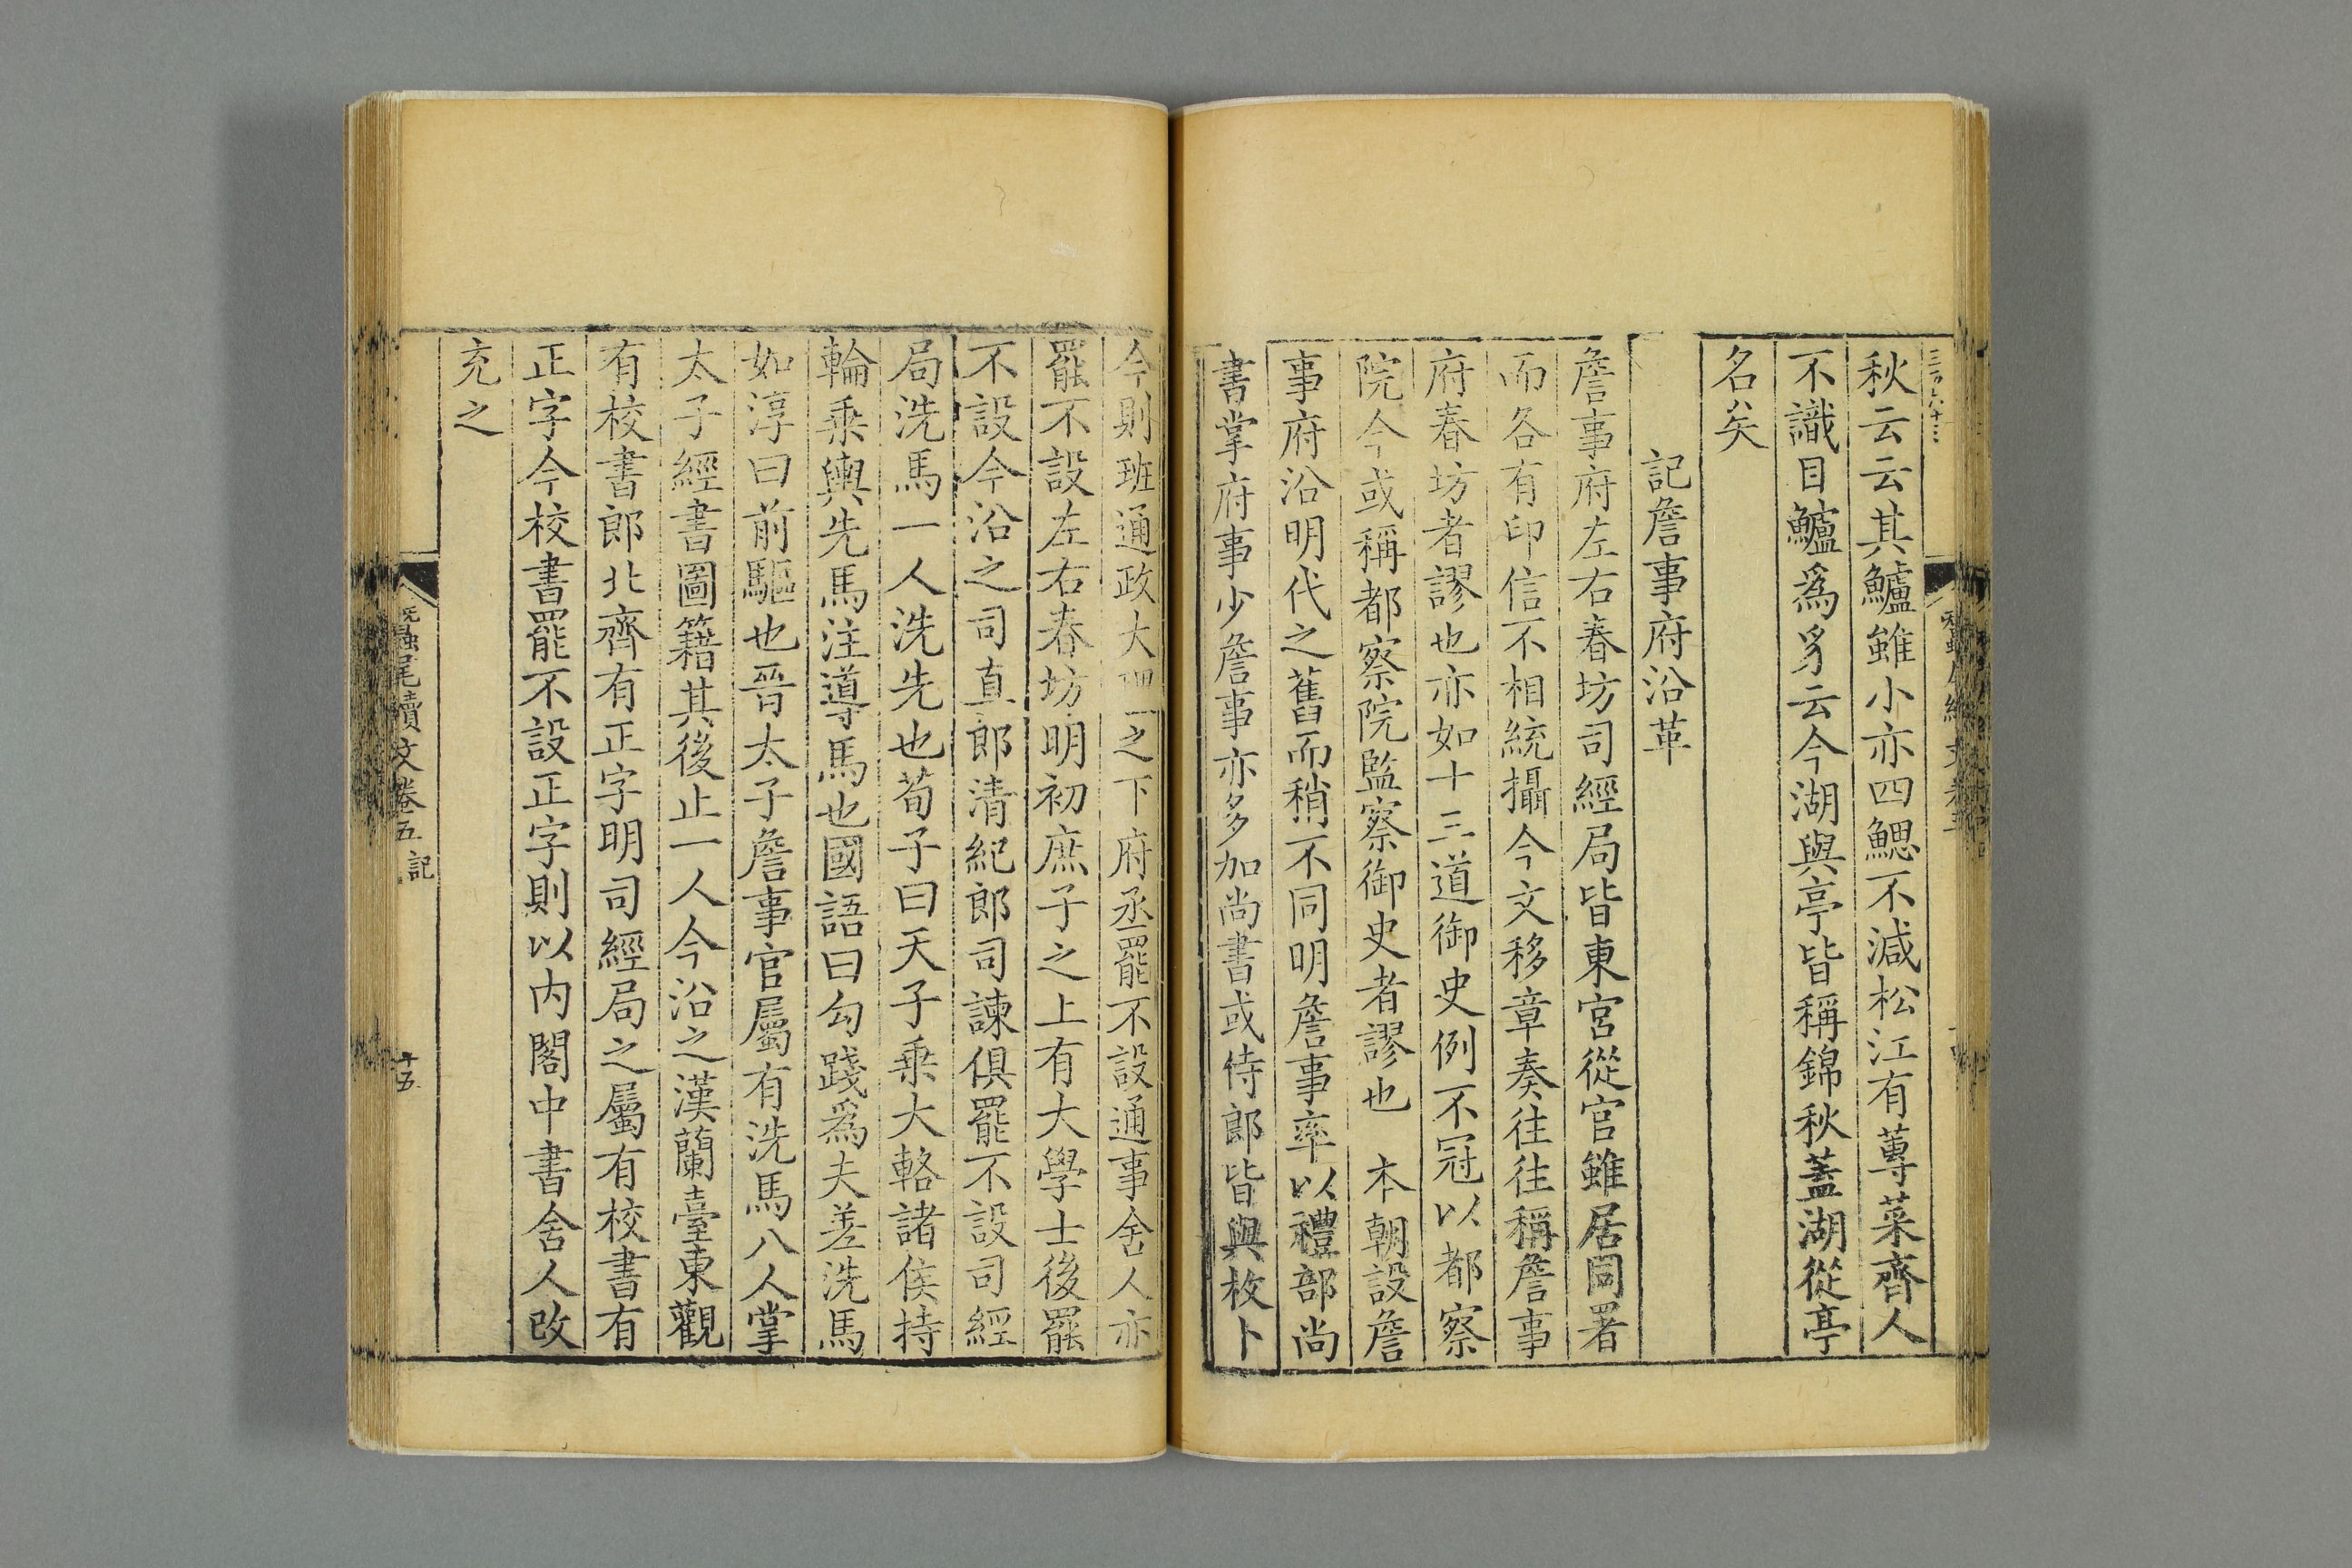 秋云云其鱸雖小亦四鰓不減松江有蓴菜齊人
不識目鱸爲豸云今湖與亭皆稱錦秋蓋湖從亭
名矣
記詹事府沿革
詹事府左右春坊司經局皆東宮從官雖居同署
而各有印信不相統攝今文移章奏往往稱詹事
府春坊者謬也亦如十三道御史例不冠以都察
院今或稱都察院監察御史者謬也 本朝設詹
事府沿明代之舊而稍不同明詹事率以禮部尚
書掌府事少詹事亦多加尚書或侍郎皆與枚卜
今則班通政大理之下府丞罷不設通事舍人亦
罷不設左右春坊明初庶子之上有大學士後罷
不設今沿之司直郎清紀郎司諫俱罷不設司經
局洗馬一人洗先也荀子曰天子乘大輅諸侯持
輪乘輿先馬注導馬也國語曰勾踐爲夫差洗馬
如淳曰前驅也晉太子詹事官屬有洗馬八人掌
太子經書圖籍其後止一人今沿之漢蘭臺東觀
有校書郎北齊有正字明司經局之屬有校書有
正字今校書罷不設正字則以內閣中書舍人改
充之
蠶尾續文卷五 記
十五